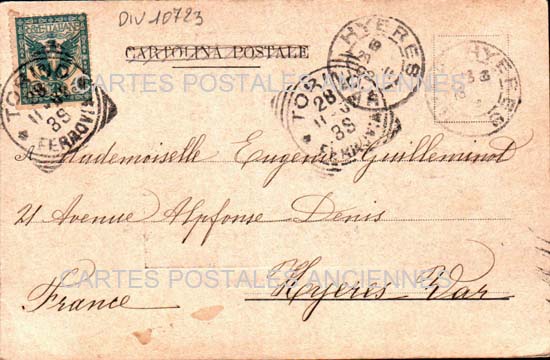 DIV 10723
CARTOLINA POSTALE
HYERES
HYERES
TORINO
28
11
88
FERROVIA
TORINO
28
11
88
FERROVIA
CARTES POSTALES ANCIENNES
A Mademoiselle Eugenie Guilleminot
21 Avenue Alphonse Denis
CARTES POSTALES ANCIENNES
France Hyeris Var